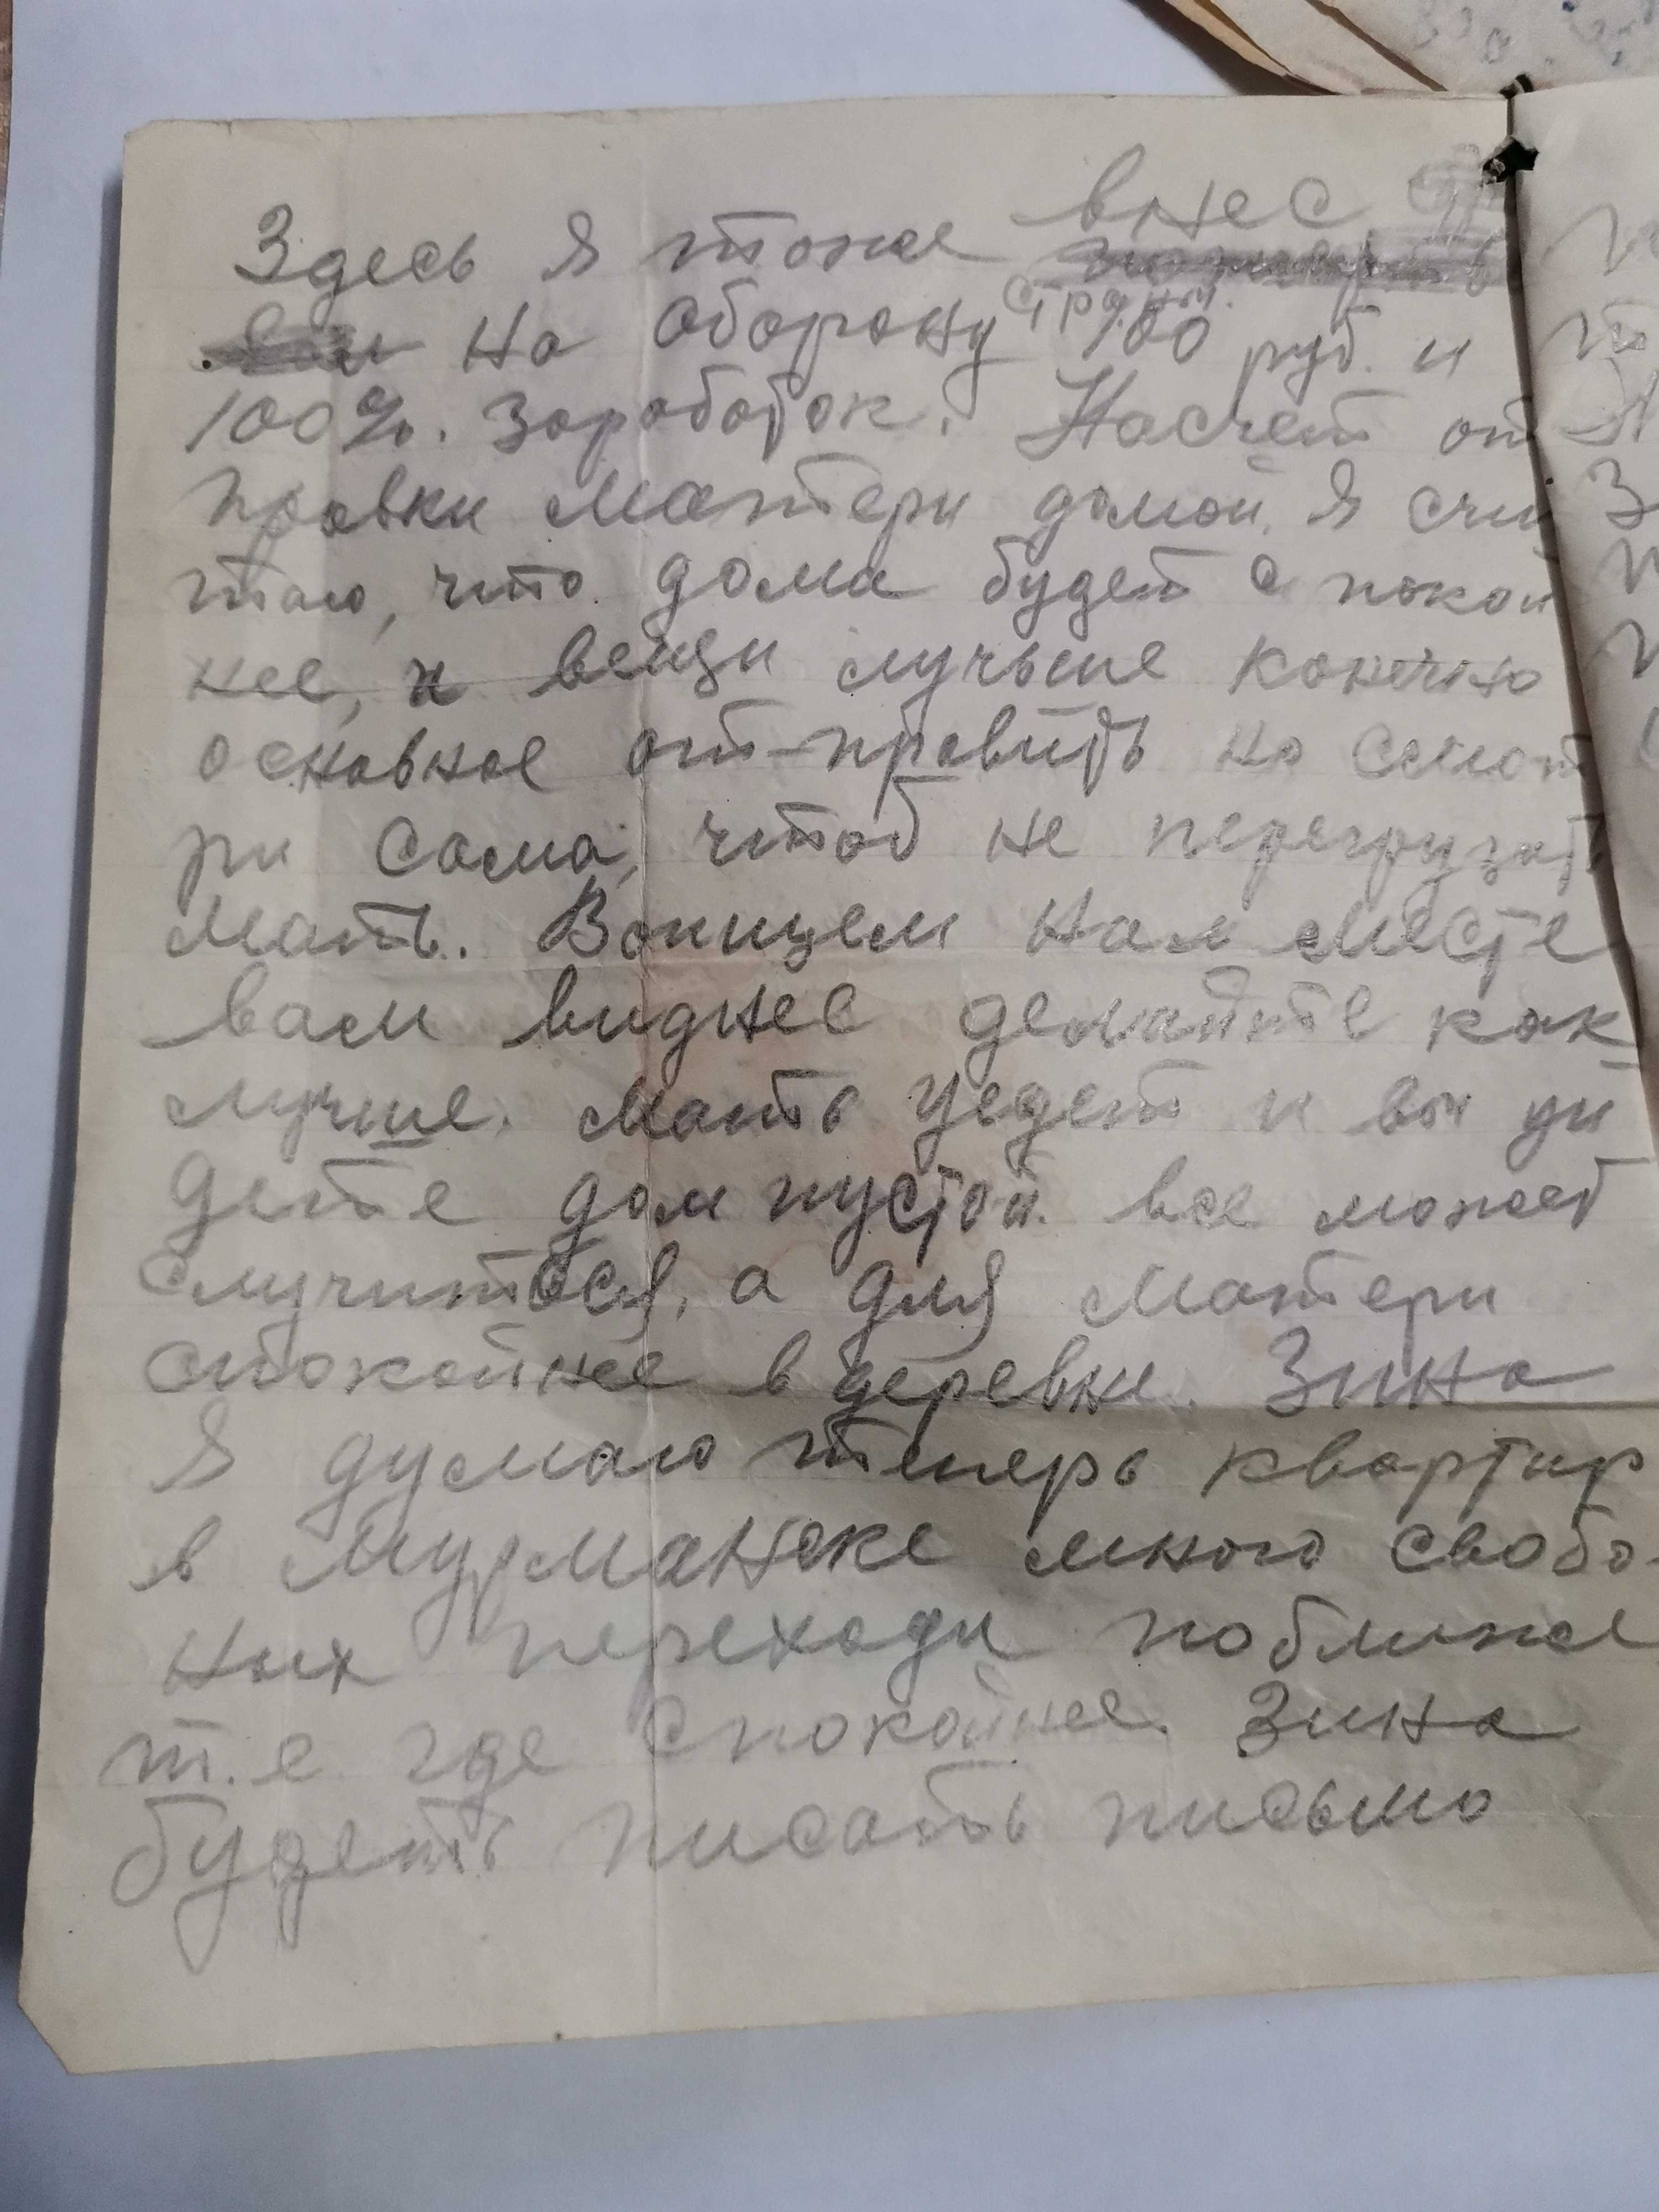 Здесь я тоже внес
на оборону страны. 100 руб. и
100%. заработок. Насчет от
правки матери домой, я счи
таю, что дома будет спокой
нее, и вещи лучьше конечно
основное от-править но смот
ри сама, чтоб не перегрузить
мать. Вопщем нам месте
вам виднее делайте как
лучше. мать уедет и вы уй
дете дом пустой. все может
случиться, а для матери
спокойнее в деревне. Зина
Я думаю теперь квартир
в Мурманске много свобо-
ных переходи поближе
т.е где спокойнее. Зина
будеть писать письмо